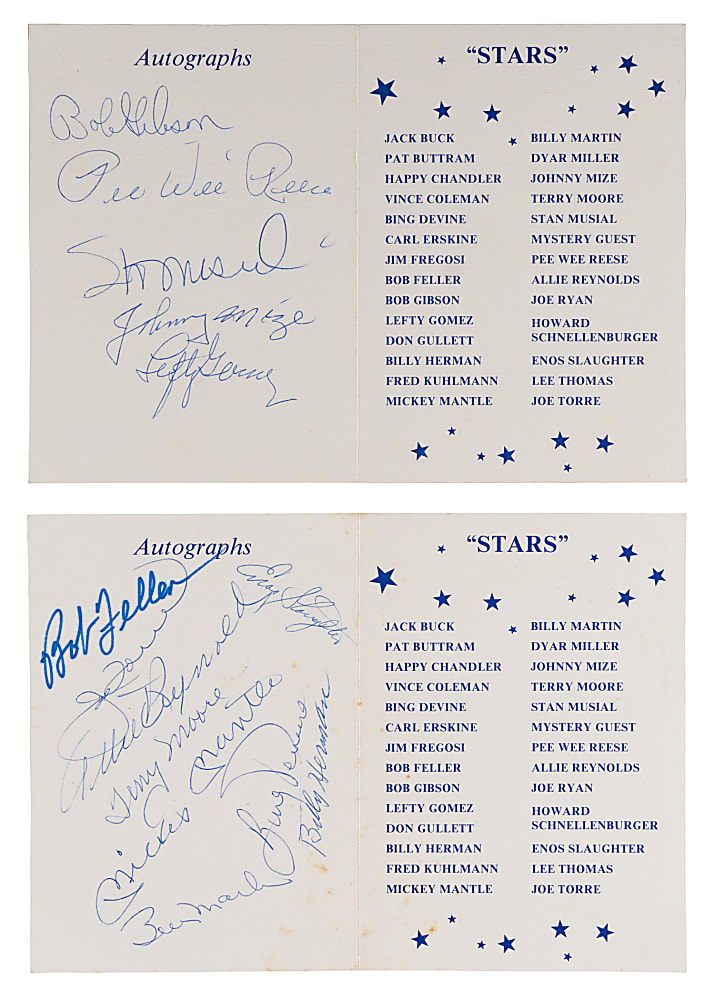 Autographs
Bob Gibson
Pee Wee Reese
Stan Musial
Johnny Mize
Lefty Gomez
"STARS"
JACK BUCK
PAT BUTTRAM
HAPPY CHANDLER
VINCE COLEMAN
BING DEVINE
CARL ERSKINE
JIM FREGOSI
BOB FELLER
BOB GIBSON
LEFTY GOMEZ
DON GULLETT
BILLY HERMAN
FRED KUHLMANN
MICKEY MANTLE
BILLY MARTIN
DYAR MILLER
JOHNNY MIZE
TERRY MOORE
STAN MUSIAL
MYSTERY GUEST
PEE WEE REESE
ALLIE REYNOLDS
JOE RYAN
HOWARD
SCHNELLENBURGER
ENOS SLAUGHTER
LEE THOMAS
JOE TORRE
Autographs
Bob Feller
Enos Slaughter
Allie Reynolds
Terry Moore
Mickey Mantle
Bing Devine
Billy Herman
Billy Martin
"STARS"
JACK BUCK
PAT BUTTRAM
HAPPY CHANDLER
VINCE COLEMAN
BING DEVINE
CARL ERSKINE
JIM FREGOSI
BOB FELLER
BOB GIBSON
LEFTY GOMEZ
DON GULLETT
BILLY HERMAN
FRED KUHLMANN
MICKEY MANTLE
BILLY MARTIN
DYAR MILLER
JOHNNY MIZE
TERRY MOORE
STAN MUSIAL
MYSTERY GUEST
PEE WEE REESE
ALLIE REYNOLDS
JOE RYAN
HOWARD
SCHNELLENBURGER
ENOS SLAUGHTER
LEE THOMAS
JOE TORRE